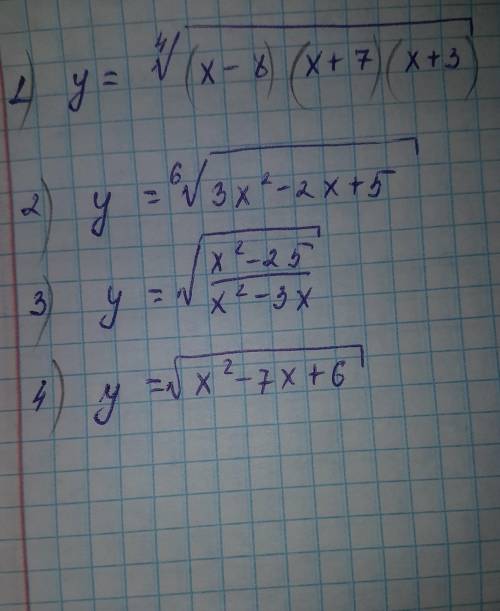 1) y = ⁴√(x - 8)(x + 7)(x + 3)
2) y = ⁶√3x² - 2x + 5
3) y = √(x² - 25)/(x² - 3x)
4) y = √x² - 7x + 6